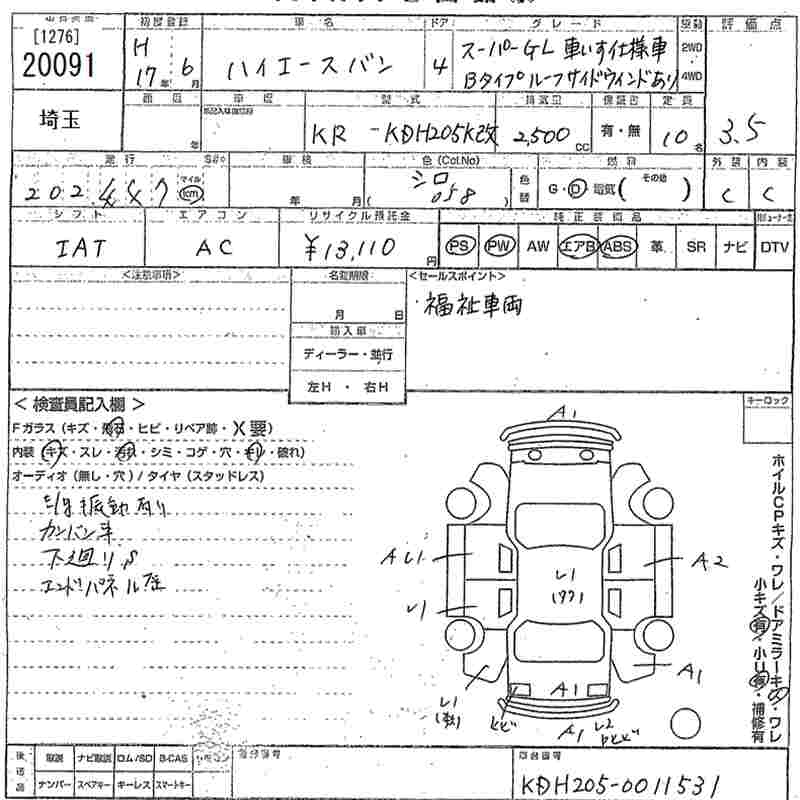 初度登録 車名 ドア グレード 駆動 評価点
[1276]
20091
H 17年 6月 ハイエースバン 4 スーパーGL 車いす仕様車 2WD
Bタイプ ルーフサイドウインドあり 4WD
埼玉
型式 排気量 保証書 定員
年 KR -KDH205K改 2,500 CC 有・無 10名 3.5
走行 車検 色(Col.No) 燃料 外装 内装
202,447 マイル km 年 月 ( シロ 058 ) 色替 G・D・電気( その他 ) C C
シフト エアコン リサイクル預託金 純正装備品
IAT AC ¥13,110円 PS PW AW エアB ABS 革 SR ナビ DTV
<注意事項> 名変期限 <セールスポイント>
月 日 福祉車両
輸入車
ディーラー・並行
左H・右H
<検査員記入欄> キーロック
Fガラス(キズ・飛石・ヒビ・リペア跡・X要)
内装(キズ・スレ・汚れ・シミ・コゲ・穴・キリ・破れ)
オーディオ(無し・穴)/タイヤ(スタッドレス)
振動有り
カンバン車
下廻りS
エンドパネル歪
A1
A2
A1
A1
A1
ヒビ
ホイルCPキズ・ワレ/ドアミラーキズ・ワレ
小キズ有・小U有・補修有
後送品 取説 ナビ取説 ロム/SD B-CAS リモコン
ナンバー スペアキー キーレス スマートキー
車台番号
KDH205-0011531